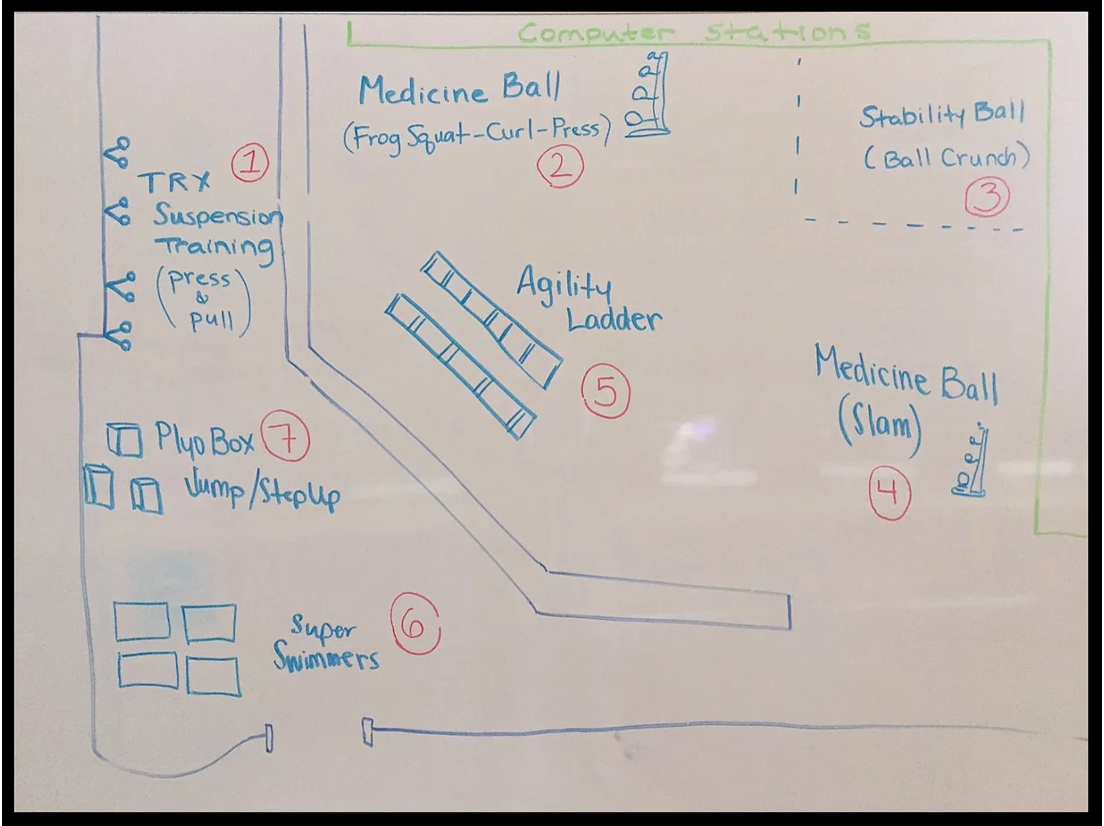 Computer Stations
Medicine Ball
(Frog Squat-Curl-Press)
2
Stability Ball
(Ball Crunch)
3
TRX
1
Suspension
Training
(press
&
pull)
Agility
Ladder
5
Medicine Ball
(Slam)
4
Plyo Box 7
Jump/Step Up
Super
Swimmers
6